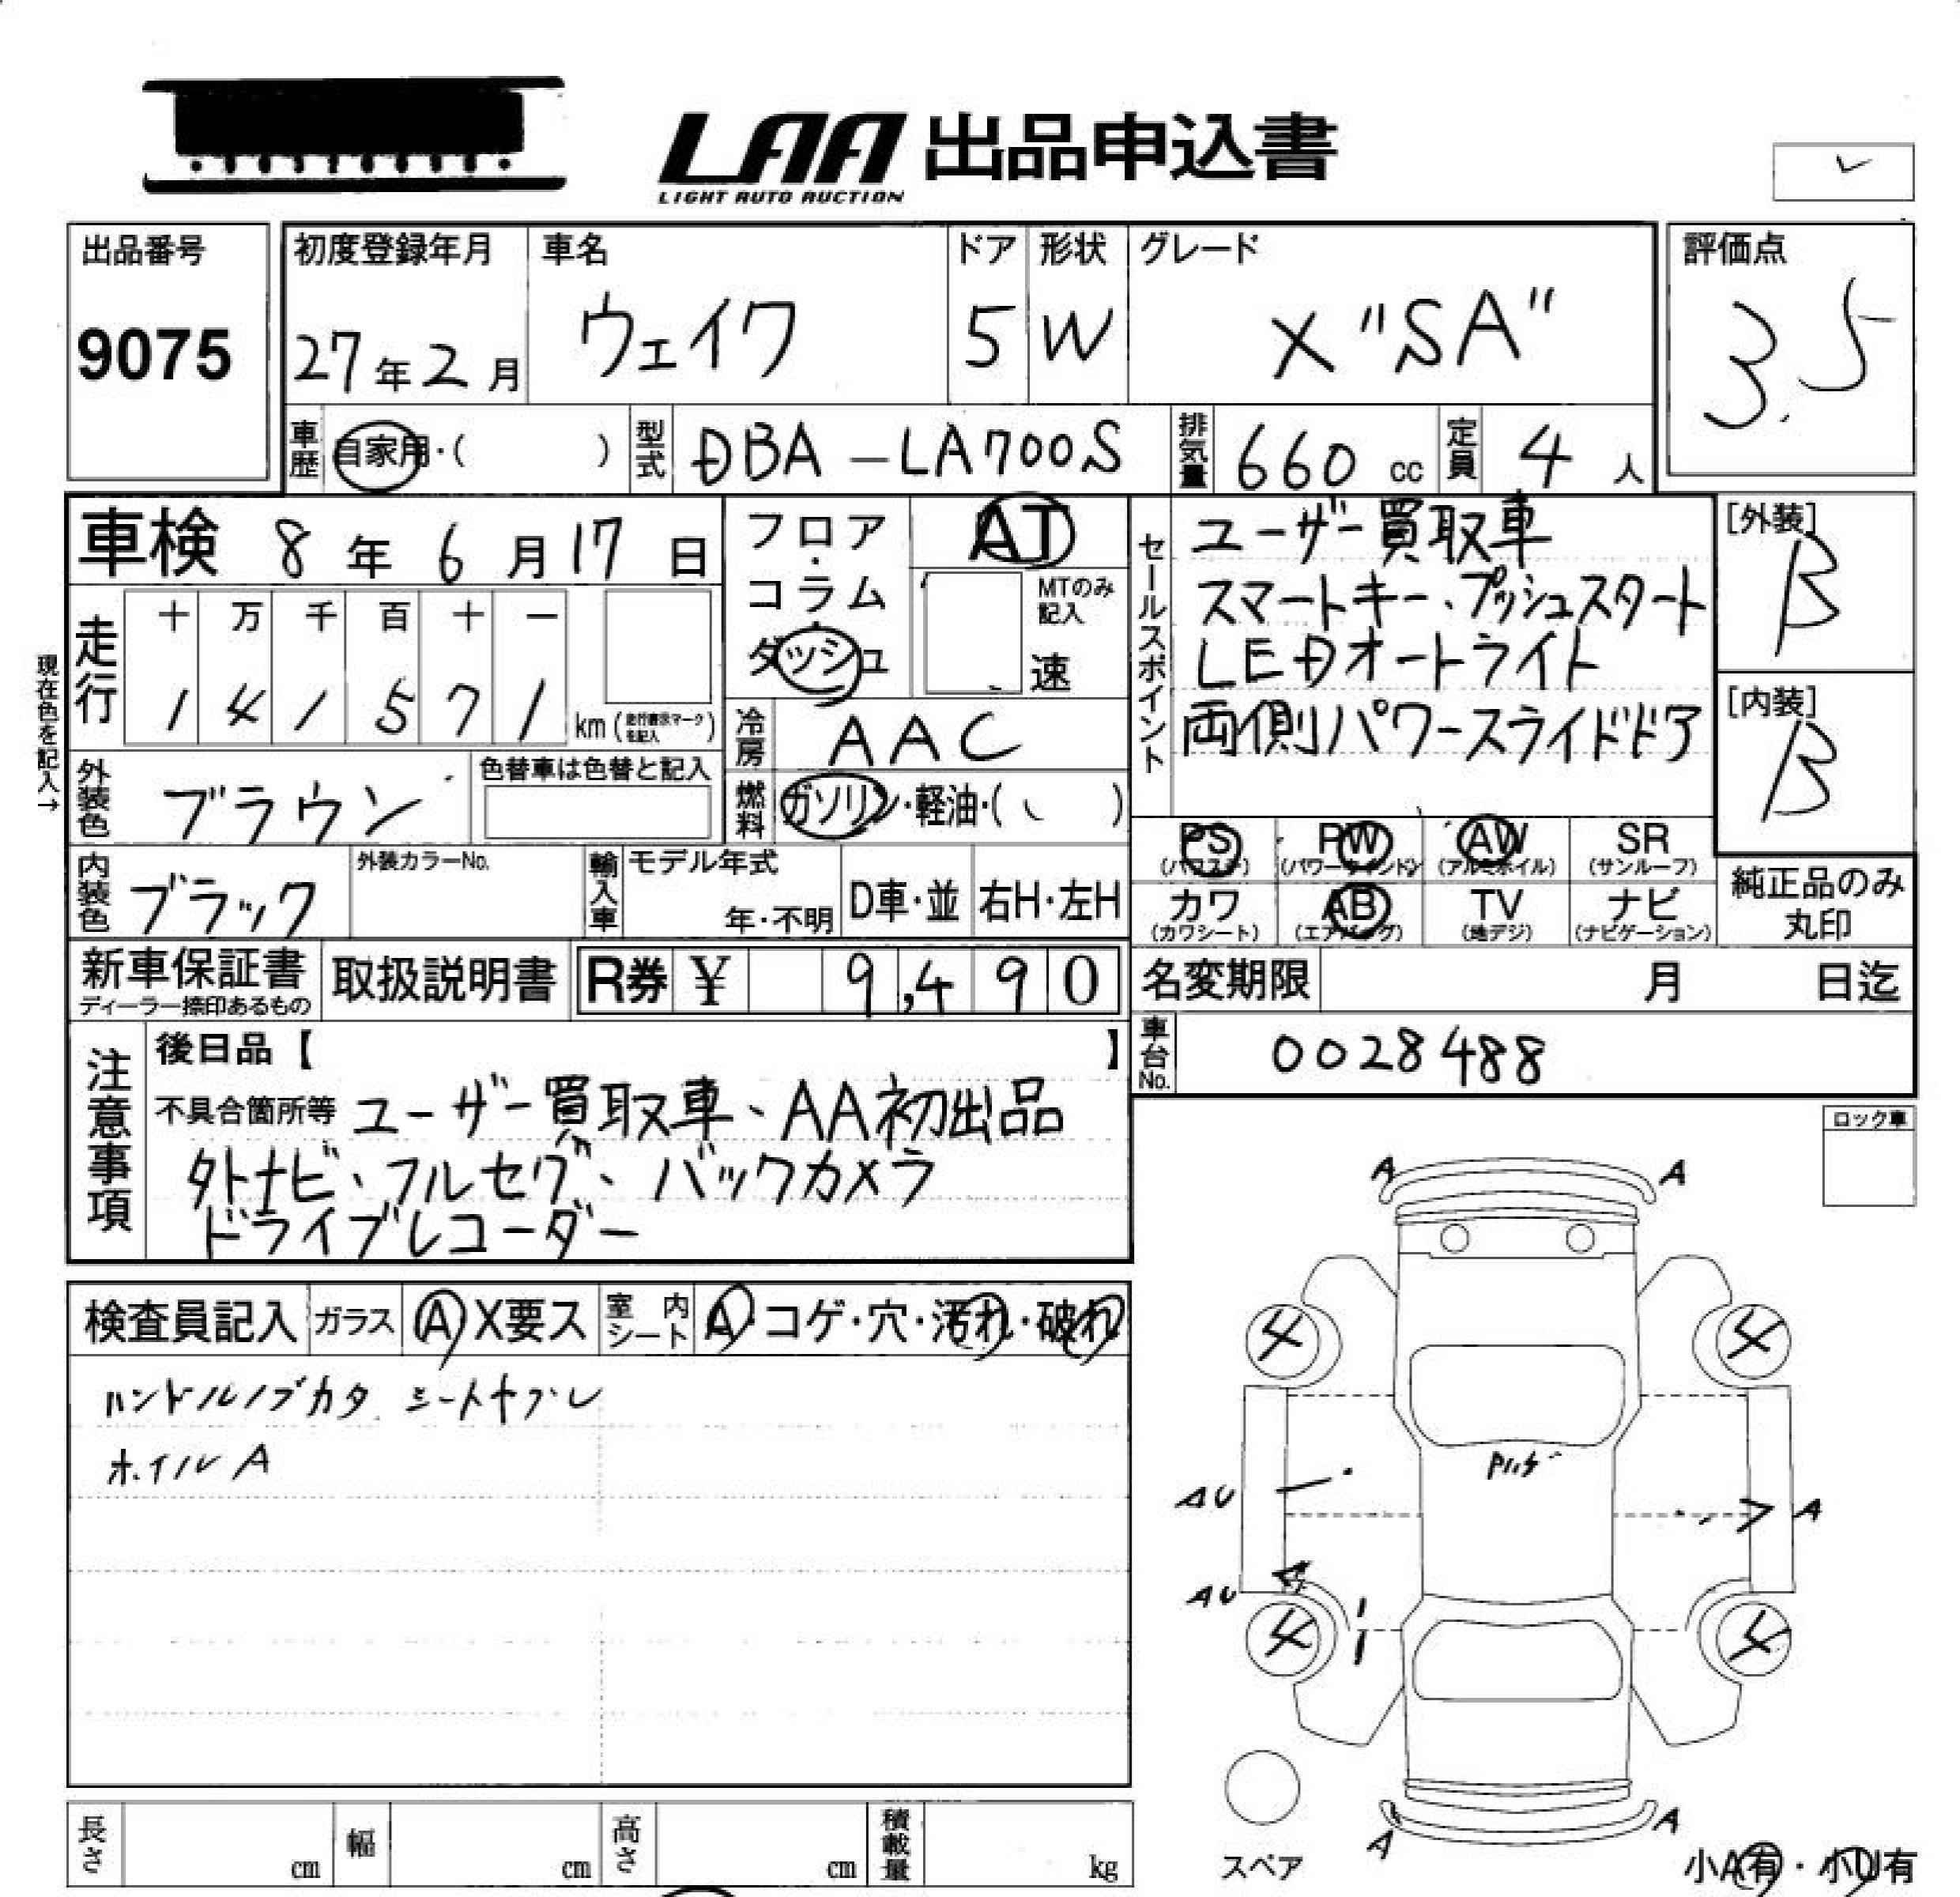 LAA 出品申込書
LIGHT AUTO AUCTION
出品番号
9075
初度登録年月
27年2月
車名
ウェイク
ドア
5
形状
W
グレード
X "SA"
評価点
3.5
車歴 自家用・( )
型式 DBA-LA700S
排気量 660 cc
定員 4 人
車検 8年6月17日
フロア・コラム・ダッシュ
AT
MTのみ記入
速
セールスポイント
ユーザー買取車
スマートキー、プッシュスタート
LEDオートライト
両側パワースライドドア
[外装]
B
[内装]
B
現在色を記入→
走行
十 万 千 百 十 一
1 4 1 5 7 1 km
冷房 AAC
外装色 ブラウン
色替車は色替と記入
燃料 ガソリン・軽油・( )
PS (パワステ)
PW (パワーウインドウ)
AW (アルミホイル)
SR (サンルーフ)
カワ (カワシート)
AB (エアバッグ)
TV (地デジ)
ナビ (ナビゲーション)
純正品のみ
丸印
内装色 ブラック
外装カラーNo.
輸入車
モデル年式
年・不明
D車・並
右H・左H
新車保証書
ディーラー捺印あるもの
取扱説明書
R券 ¥ 9,490
名変期限 月 日迄
車台No. 0028488
注意事項
後日品【 】
不具合箇所等 ユーザー買取車、AA初出品
外ナビ、フルセグ、バックカメラ
ドライブレコーダー
ロック車
検査員記入
ガラス A X要ス
室内シート A・コゲ・穴・汚れ・破れ
ホイルA
A A
4 4
AU A
AU
4 4
A A
スペア
小A有・小U有
長さ cm
幅 cm
高さ cm
積載量 kg